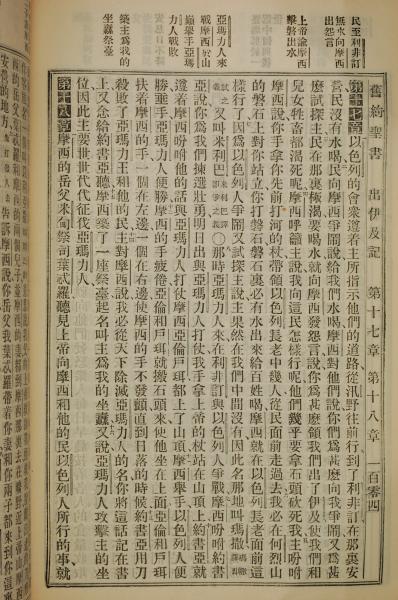 舊約聖書　出伊及記　第十七章　第十八章　一百零四
民至利非訂
無水向摩西
發怨言
上帝諭摩西
擊磐出水
亞瑪力人來
戰摩西於山
巔舉手亞瑪
力人戰敗
築主爲我的
坐纛祭臺
第十七章以色列的會衆遵着主所指示他們的道路從汛野往前行到了利非訂在那裏安
營民沒有水喝民向摩西爭鬧說給我們水喝摩西對他們說你們爲甚麼向我爭鬧又爲甚
麼試探主民在那裏極渴要喝水就向摩西發怨言說你爲甚麼領我們出了伊及使我們和
兒女牲畜都渴死呢摩西呼籲主說我向這民怎樣行呢他們幾乎要拿石頭砍死我主吩咐
摩西說你手拿你先前打河的杖帶領以色列長老中幾人從民面前走過去我必在何烈山
的磐石上對你站立你打磐石磐石裏必有水出來給百姓喝摩西就在以色列長老面前這
樣行了因爲以色列人爭鬧又試探主說主果然在我們中間沒有因此名那地叫瑪撒
又叫米利巴〇那時亞瑪力人來在利非訂與以色列人爭戰摩西吩咐約書
亞說你爲我們揀選壯勇明日出與亞瑪力人打仗我手拿上帝的杖站在山頂上約書亞就
遵着摩西吩咐他的話與亞瑪力人打仗摩西亞倫戶珥都上了山頂摩西舉手以色列人便
勝垂手亞瑪力人便勝摩西的手疲倦亞倫戶珥就搬石頭來使他坐在上面亞倫和戶珥
扶着摩西的手一個在左邊一個在右邊使摩西的手不發顫直到日落的時候約書亞用刀
殺敗了亞瑪力王和他的民主對摩西說我必從天下除滅亞瑪力人的名你將這話記在書
上又念給約書亞聽摩西築了一座祭臺起名叫主爲我的坐纛又說亞瑪力人攻擊主的坐
位因此主要世世代代征伐亞瑪力人
第十八章摩西的岳父米甸祭司葉忒羅聽見上帝向摩西和他的民以色列人所行的事就